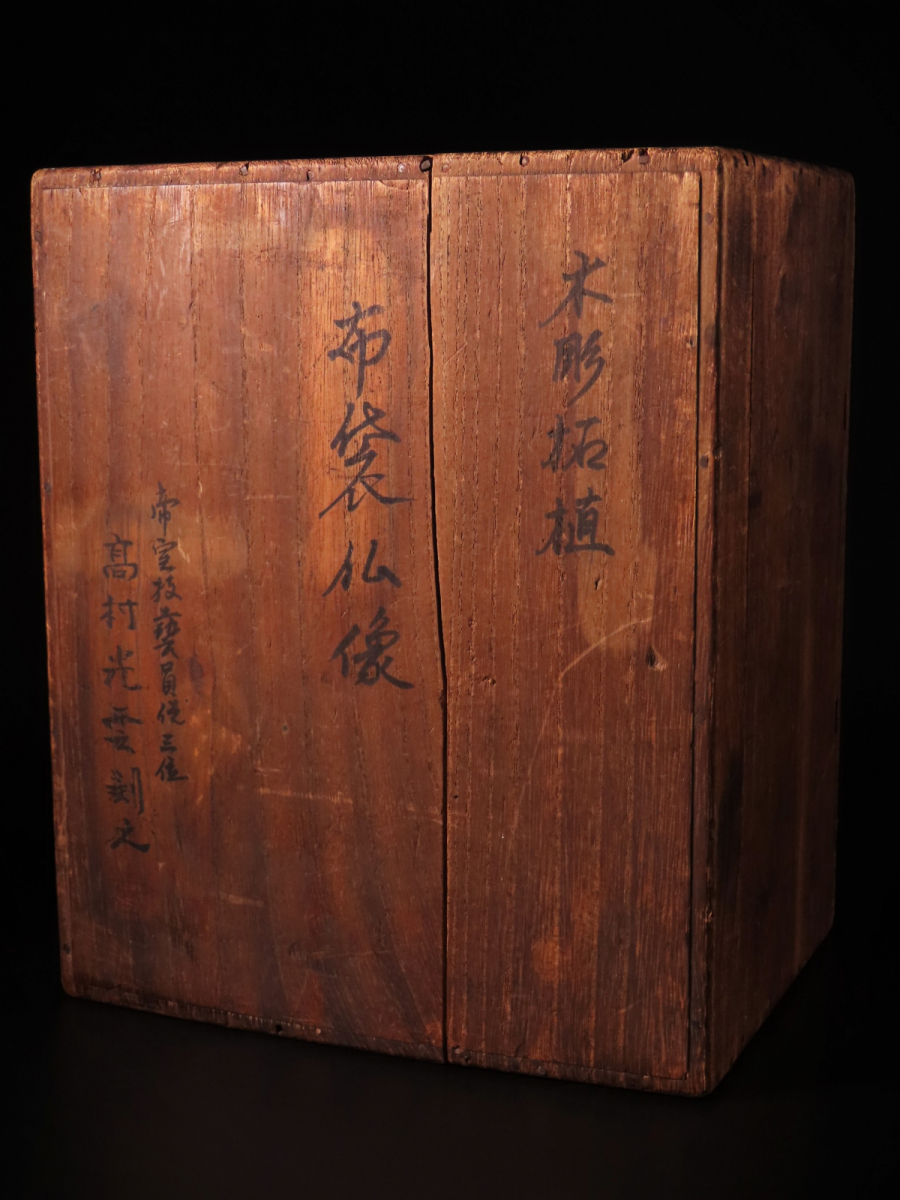 木彫拓植
布袋仏像
帝室技藝員従三位
高村光雲刻之